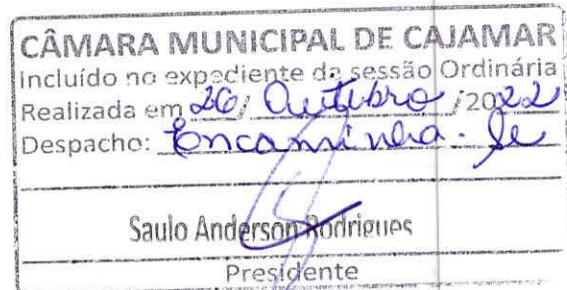 CÂMARA MUNICIPAL DE CAJAMAR
Incluído no expediente da sessão Ordinária
Realizada em 26/ Outubro /2022
Despacho: Encaminha-se
Saulo Anderson Rodrigues
Presidente